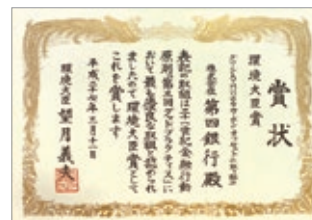 賞状
環境大臣賞
株式会社 第四銀行 殿
表記の取組は二十一世紀金融行動
原則「第五回グッドプラクティス」に
おいて最も優良な取組と認められ
ましたので環境大臣賞として
これを賞します
平成二十七年三月十一日
環境大臣 望月義夫